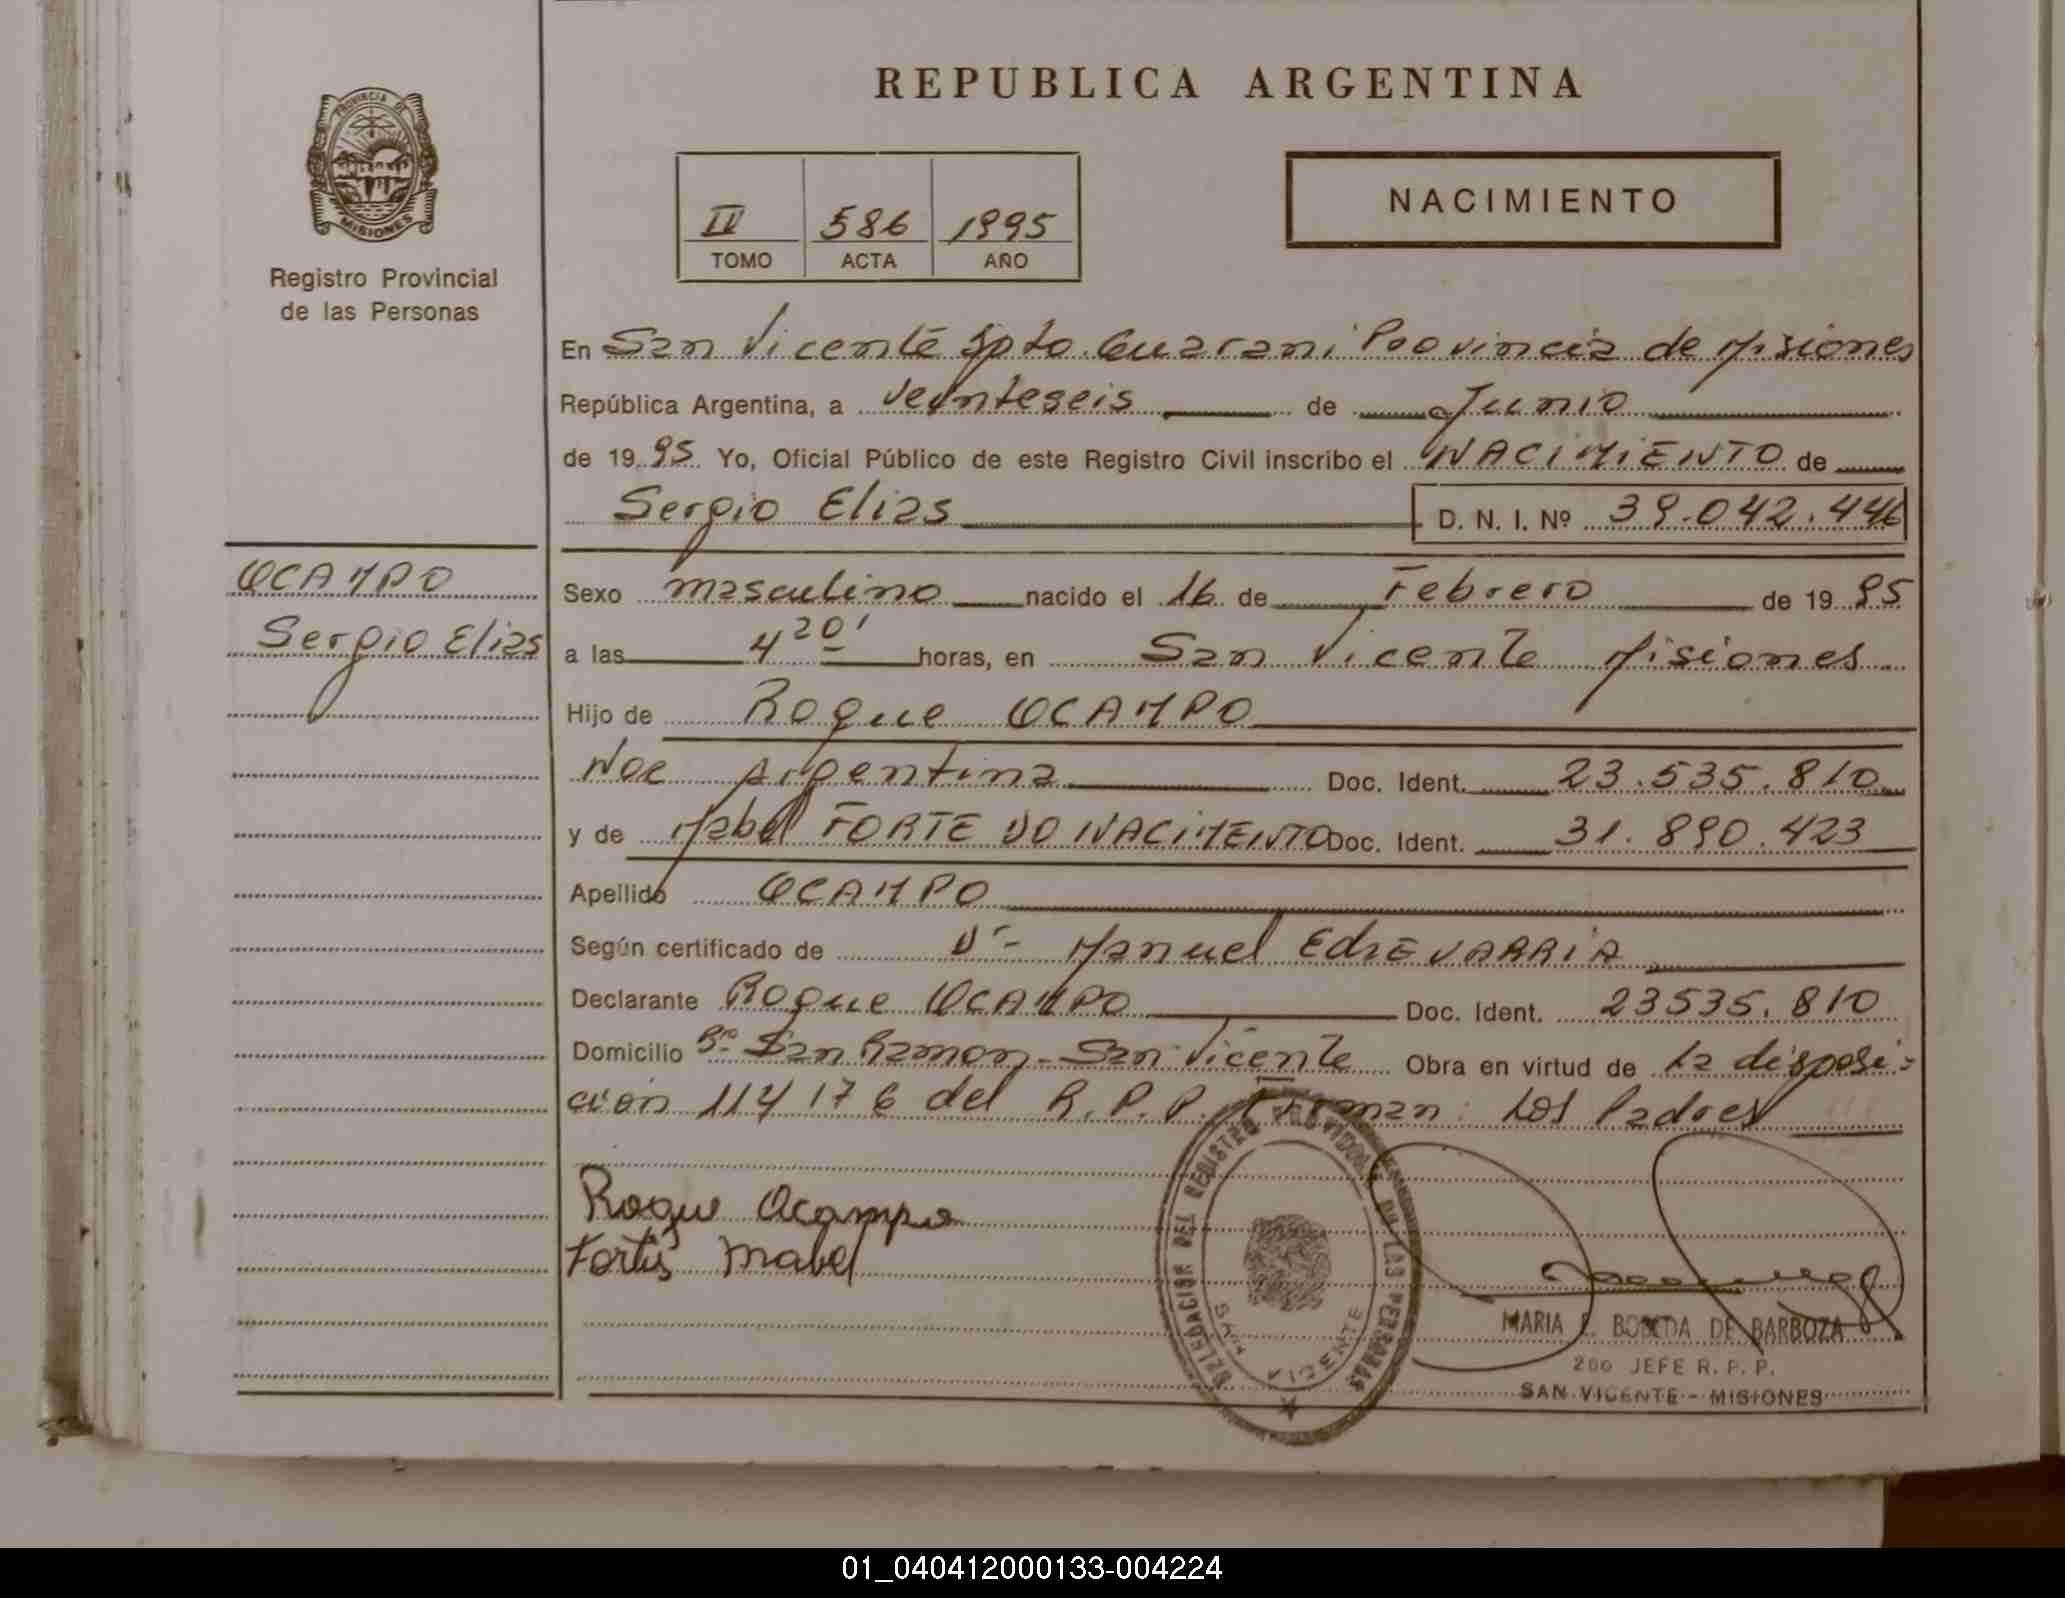 REPUBLICA ARGENTINA
PROVINCIA DE
MISIONES
Registro Provincial
de las Personas
II 586 1995
TOMO ACTA AÑO
NACIMIENTO
En San Vicente Dpto. Guarani Provincia de Misiones
República Argentina, a veinteseis de Junio
de 1995 Yo, Oficial Público de este Registro Civil inscribo el NACIMIENTO de
Sergio Elias D. N. I. Nº 39.042.446
OCAMPO
Sergio Elias
Sexo masculino nacido el 16 de Febrero de 1995
a las 4 20' horas, en San Vicente Misiones
Hijo de Roque OCAMPO
Nac Argentina Doc. Ident. 23.535.810
y de Mabel FORTE DO NACIMENTO Doc. Ident. 31.890.423
Apellido OCAMPO
Según certificado de Dr- Manuel EchEVARRIA
Declarante Roque OCAMPO Doc. Ident. 23535.810
Domicilio Bº San Ramon - San Vicente Obra en virtud de La disposi-
ción 114/76 del R.P.P. Firman: Los Padres
Roque Ocampo
Fortes Mabel
DELEGACION DEL REGISTRO PROVINCIAL DE LAS PERSONAS
SAN VICENTE
MARIA E. BOVEDA DE BARBOZA
2do JEFE R. P. P.
SAN VICENTE - MISIONES
01_040412000133-004224